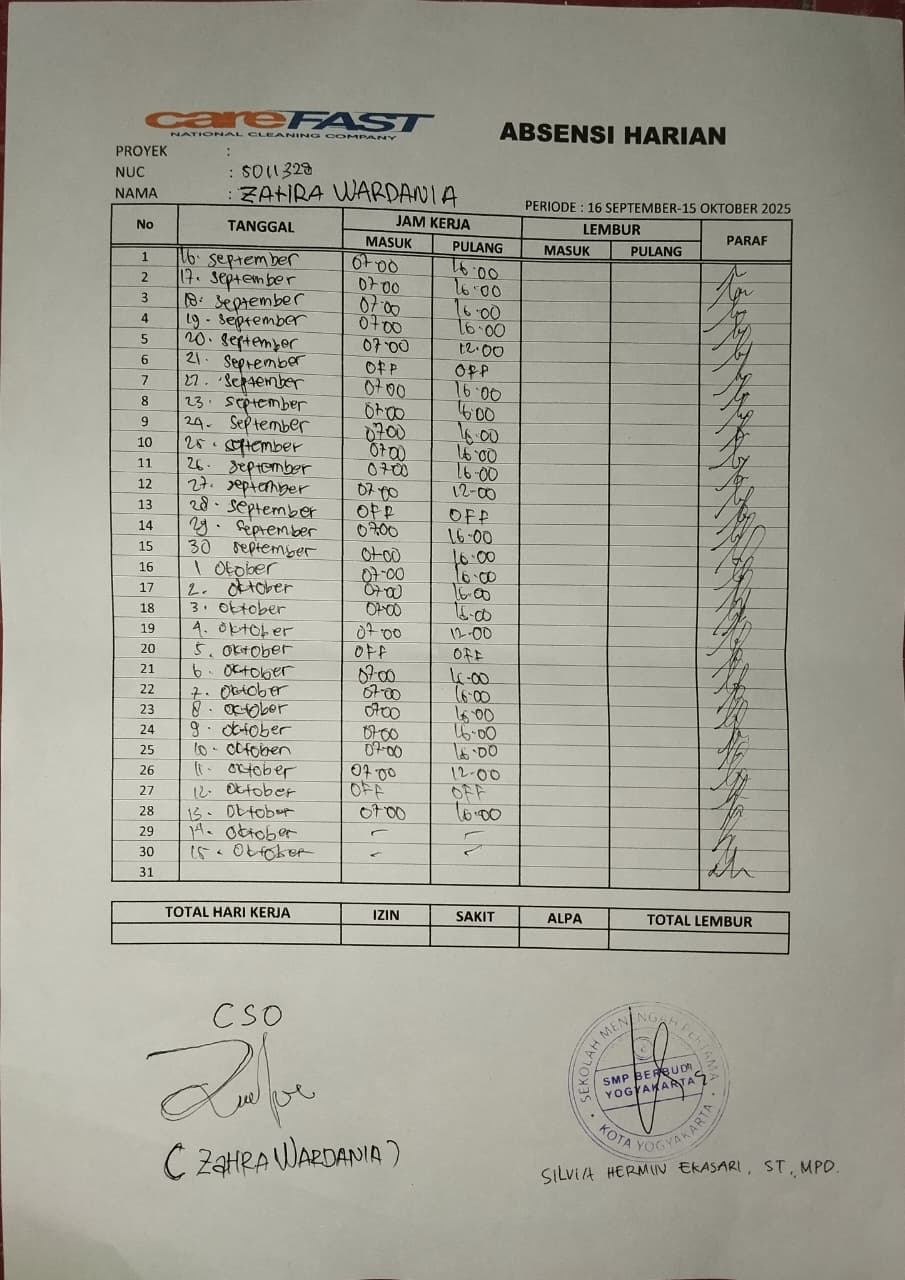 careFAST
NATIONAL CLEANING COMPANY
ABSENSI HARIAN
PROYEK :
NUC : 5011328
NAMA : ZAHRA WARDANIA
PERIODE : 16 SEPTEMBER-15 OKTOBER 2025
No TANGGAL JAM KERJA LEMBUR PARAF
MASUK PULANG MASUK PULANG
1 16. September 07.00 16.00
2 17. September 07.00 16.00
3 18. September 07.00 16.00
4 19. September 07.00 16.00
5 20. September 07.00 12.00
6 21. September OFF OFF
7 22. September 07.00 16.00
8 23. September 07.00 16.00
9 24. September 07.00 16.00
10 25. September 07.00 16.00
11 26. September 07.00 16.00
12 27. September 07.00 12-00
13 28. September OFF OFF
14 29. September 07.00 16.00
15 30 September 07.00 16.00
16 1 Otober 07-00 16.00
17 2. Oktober 07.00 16.00
18 3. Oktober 07.00 16.00
19 4. Oktober 07.00 12.00
20 5. Oktober OFF OFF
21 6. Oktober 07.00 16.00
22 7. Oktober 07.00 16.00
23 8. Oktober 07.00 16.00
24 9. Oktober 07.00 16.00
25 10- Oktober 07.00 16.00
26 11. Oktober 07.00 12.00
27 12. Oktober OFF OFF
28 13. Oktober 07.00 16.00
29 14. Oktober - -
30 15. Oktober - -
31
TOTAL HARI KERJA IZIN SAKIT ALPA TOTAL LEMBUR
CSO
(ZAHRA WARDANIA)
SEKOLAH MENENGAH PERTAMA
SMP BERBUDI
YOGYAKARTA
KOTA YOGYAKARTA
SILVIA HERMIN EKASARI, ST., MPD.